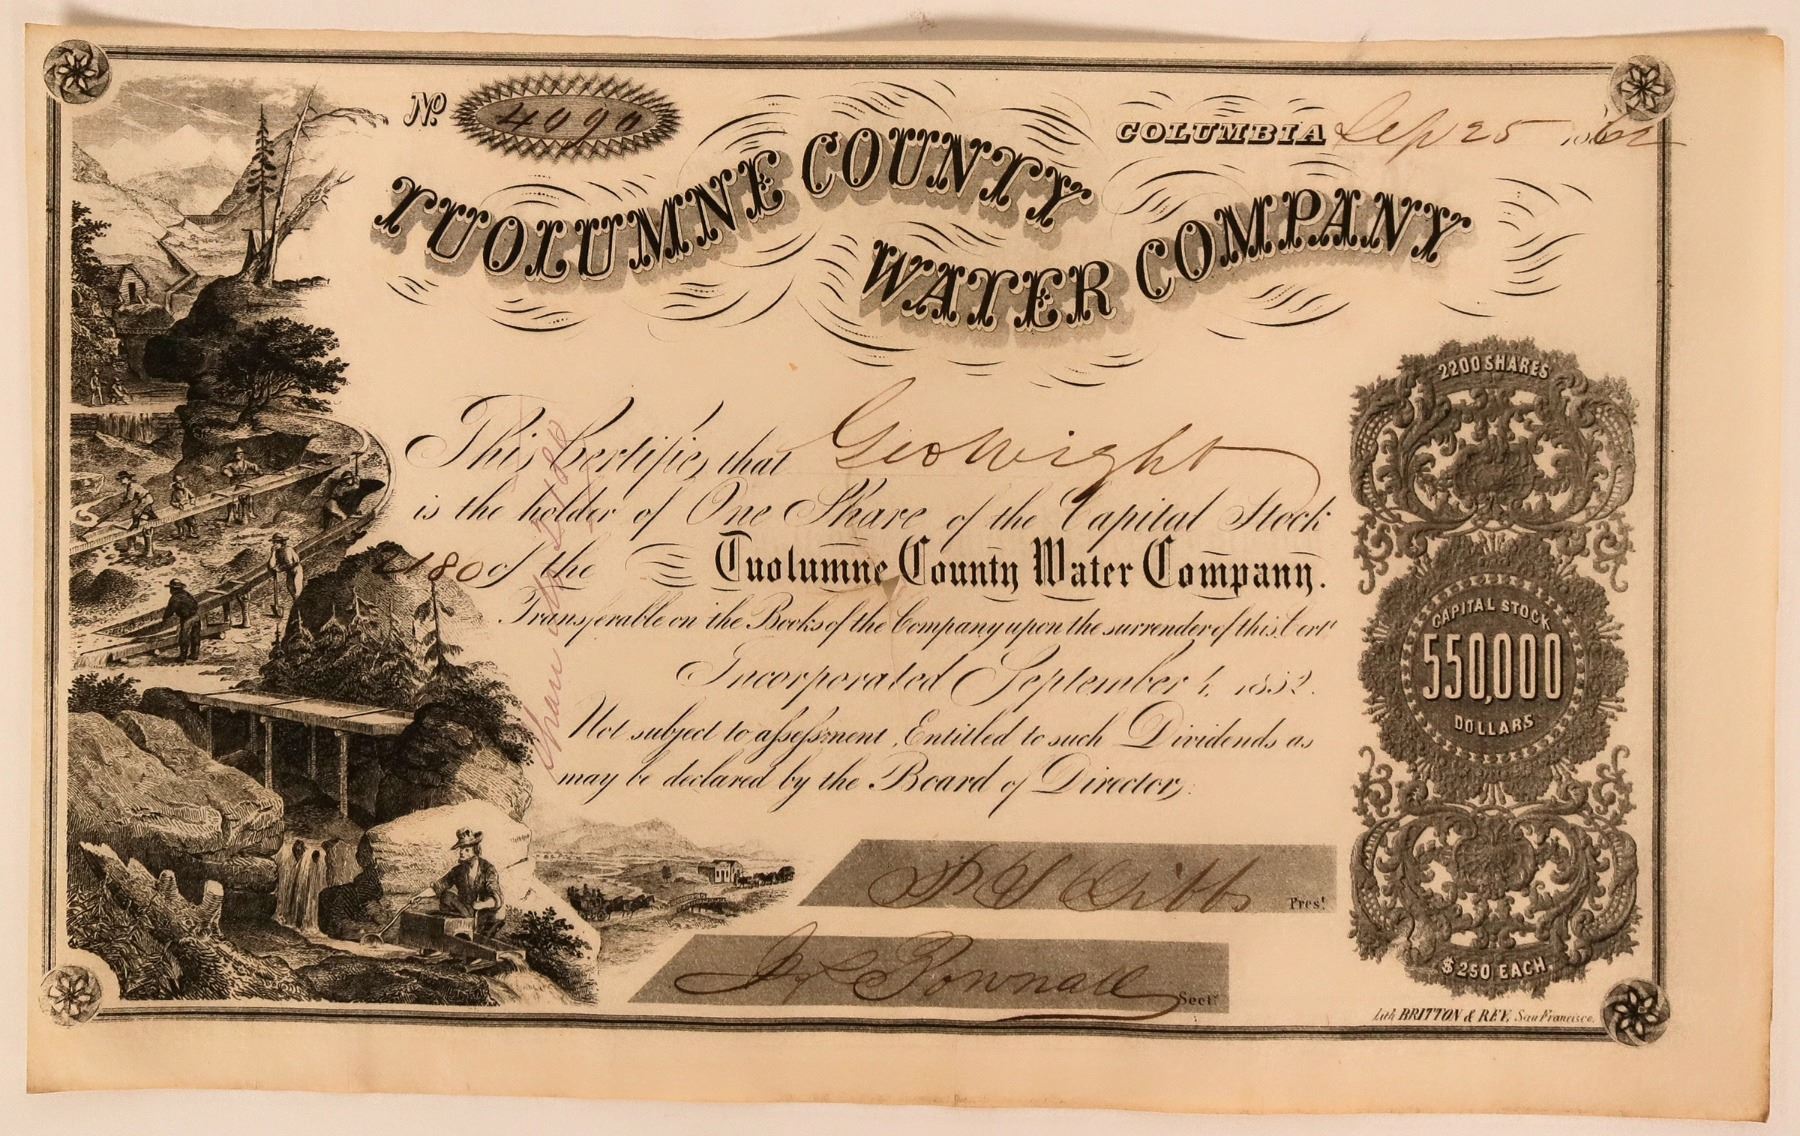 No. 4090
COLUMBIA Sep 25 1862
TUOLUMNE COUNTY
WATER COMPANY
This Certifies that Geo Wight
is the holder of One Share of the Capital Stock
of the Tuolumne County Water Company.
Transferable on the Books of the Company upon the surrender of this Certt
Incorporated September 4, 1852.
Not subject to assessment, Entitled to such Dividends as
may be declared by the Board of Directors.
Gibbs Prest
Pownall Secty
2200 SHARES
CAPITAL STOCK
550,000
DOLLARS
$250 EACH
Lith BRITTON & REY, San Francisco.